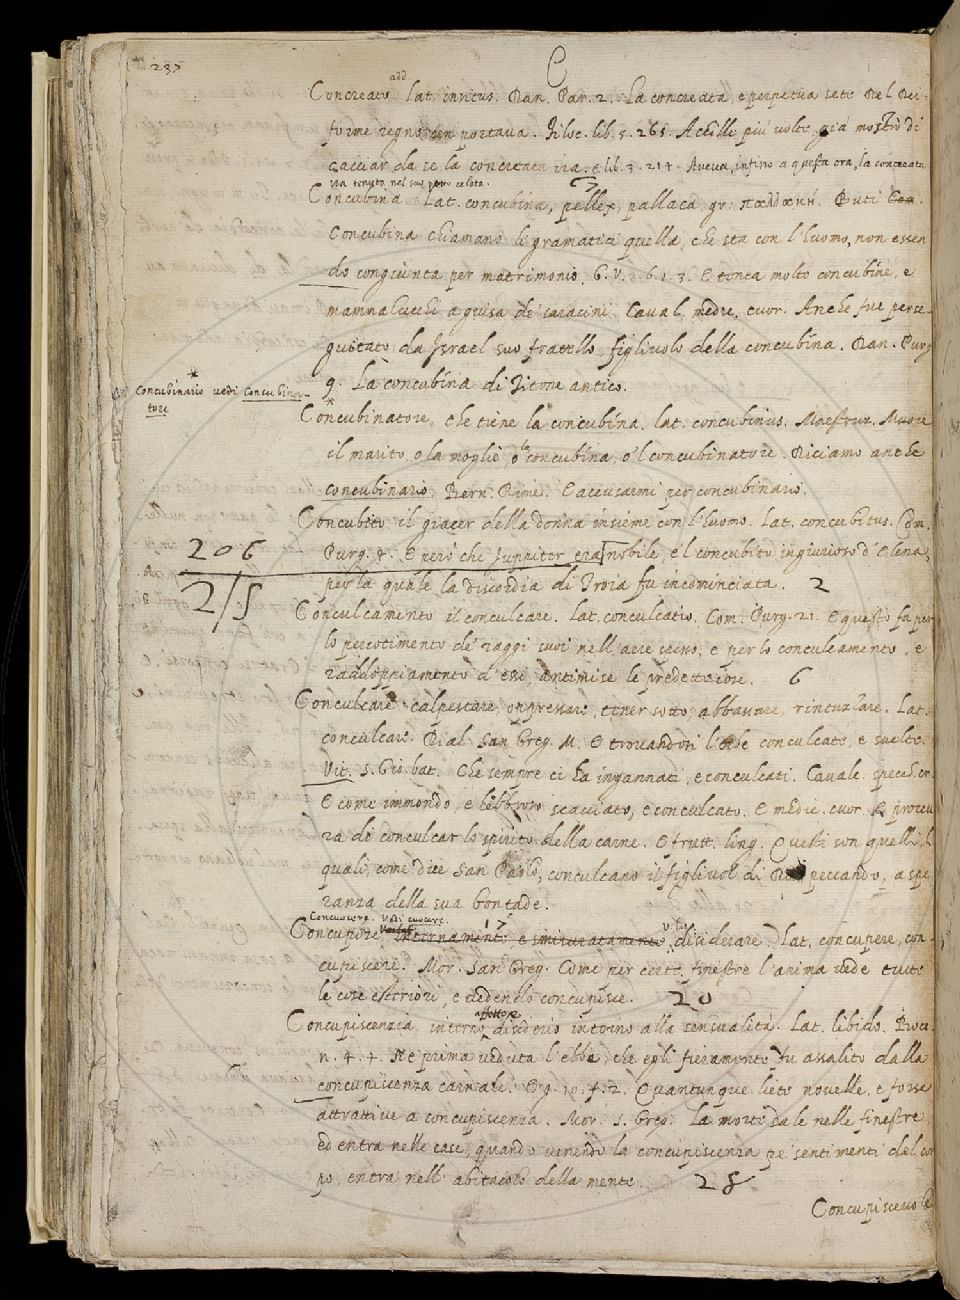 237
C
add.
Concreato Lat. innatus. Dan. Par. 2. La concreata, e perpetua sete Del Dei-
forme regno cen portava. Filoc. lib. 5. 265. Achille più volte, già mostrò di
cacciar da se la concreata ira. e lib. 3. 214. Aveva, infino a questa ora, la concreata
ira tenuta nel suo petto celata.
Concubina Lat. concubina, pellex, pallaca, gr. παλλακή. Buti
Concubina chiamano li gramatici quella, che sta con l'huomo, non essen
do congiunta per matrimonio. G. V. E tenea molte concubine, e
mammalucchi a guisa de' saracini. Caval. medic. cuor. Anche fue perse-
guitato da Israel suo fratello, figliuolo della concubina. Dan. Purg
9. La concubina di Titone antico.
* Concubinario vedi Concubina-
tore
* Concubinatore, che tiene la concubina, lat. concubinus. Maestruz. Muore
il marito, o la moglie, o la concubina, o 'l concubinatore. Diciamo anche
concubinario. Bern. Rime. E accusarmi per concubinario.
Concubito il giacer della donna insieme con l'huomo. Lat. concubitus. Com.
Purg. 4. E però che Juppiter era nobile, e 'l concubito ingiurioso d'Elena,
per la quale la discordia di Troia fu incominciata. 2
206
2/5
Conculcamento il conculcare. Lat. conculcatio. Com. Purg. 21. E questo fa per
lo percotimento de' raggi suoi nell'aere spesso, e per lo conculcamento, e
raddoppiamento d'essi, antimise le predette cose. 6
Conculcare calpestare, oppressare, tener sotto, abbassare, rintuzzare. Lat.
conculcare. Dial. San Greg. M. E trovandovi l'erbe conculcate, e svelte.
Vit. S. Gio. bat. Che sempre ci ha ingannati, e conculcati. Cavalc. specch. cr.
E come immondo, e lebbroso scacciato, e conculcato. E medic. cuor. E procu
ra di conculcar lo spirito della carne. E frutt. ling. Questi son quelli, li
quali, come dice San Paolo, conculcano il figliuol di Dio peccando, a spe
ranza della sua bontade.
Concuocere. Vedi cuocere.
17
Concupire, intornamente e smisuratamente, disiderare. Lat. concupere, con-
cupiscere. Mor. San Greg. Come per certe finestre l'anima vede tutte
le cose esteriori, e vedendo concupisce. 20
Concupiscenzia, interno disiderio intorno alla sensualità. Lat. libido. Bocc.
n. 4. 4. Nè prima veduta l'ebbe, che egli fieramente fu assalito dalla
concupiscenza carnale. E g. 10. f. 2. Quantunque liete novelle, e forse
attrattive a concupiscenza. Mor. S. Greg. La morte sale nelle finestre
ed entra nelle case, quando venendo la concupiscenza pe' sentimenti del cor
po, entra nell'abitacolo della mente. 28
Concupiscevole